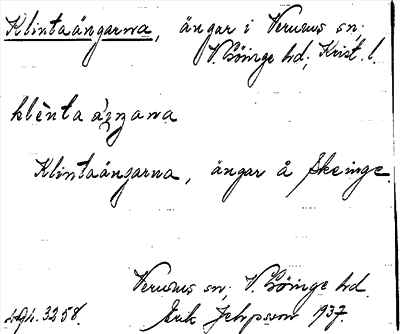 Klintaängarna, ängar i Verums sn;
V. Göinge hd; Krist. l.
klènta ä̀ŋana
Klintaängarna, ängar å Skeinge.
Verums sn; V. Göinge hd.
494. 3258. Erik Jeppsson 1937.